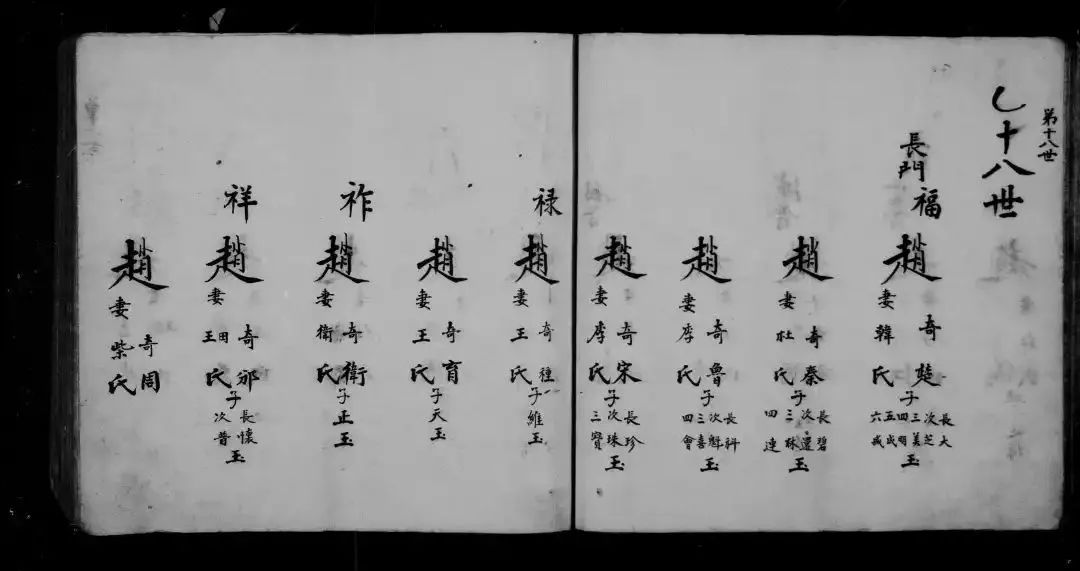 第十八世
十八世
長門 福
趙奇楚 妻韓氏 子 長大 次芝 三美 四明 五成 六成 玉
趙奇秦 妻杜氏 子 長碧 次還 三林 四連 玉
趙奇魯 妻李氏 子 長科 次魁 三喜 四會 玉
趙奇宋 妻李氏 子 長珍 次珠 三寶 玉
禄
趙奇種 妻王氏 子維玉
趙奇育 妻王氏 子天玉
祚
趙奇衛 妻衛氏 子正玉
祥
趙奇邠 妻田王氏 子 長懷 次普 玉
趙奇周 妻柴氏